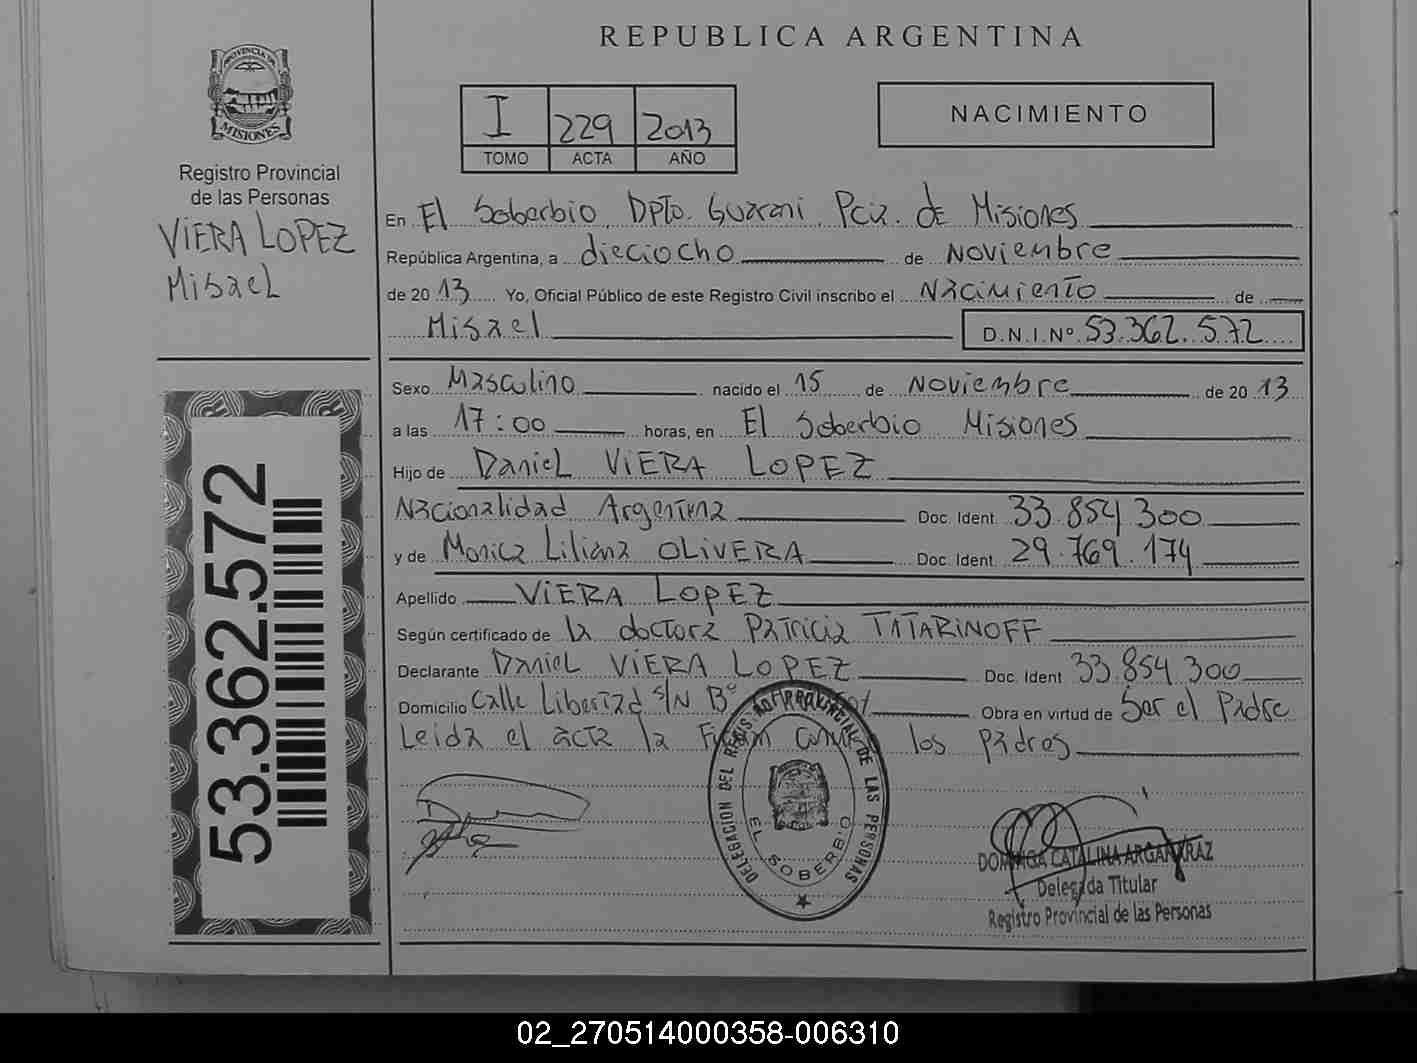 REPUBLICA ARGENTINA
PROVINCIA DE
MISIONES
Registro Provincial
de las Personas
VIERA LOPEZ
Misael
I 229 2013
TOMO ACTA AÑO
NACIMIENTO
En El Soberbio, Dpto. Guarani, Pcia. de Misiones
República Argentina, a dieciocho de Noviembre
de 2013 Yo, Oficial Público de este Registro Civil inscribo el Nacimiento de
Misael D.N.I.Nº 53.362.572
Sexo Masculino nacido el 15 de Noviembre de 2013
a las 17:00 horas, en El Soberbio Misiones
Hijo de Daniel VIERA LOPEZ
Nacionalidad Argentina Doc. Ident. 33.854.300
y de Monica Liliana OLIVERA Doc. Ident. 29.769.174
Apellido VIERA LOPEZ
Según certificado de la doctora Patricia TATARINOFF
Declarante Daniel VIERA LOPEZ Doc. Ident. 33.854.300
Domicilio Calle Libertad s/N Bº Obra en virtud de Ser el Padre
Leida el acta la Firman los padres
53.362.572
DELEGACION DEL REGISTRO PROVINCIAL DE LAS PERSONAS
EL SOBERBIO
CATALINA ARGAÑARAZ
Delegada Titular
Registro Provincial de las Personas
02_270514000358-006310